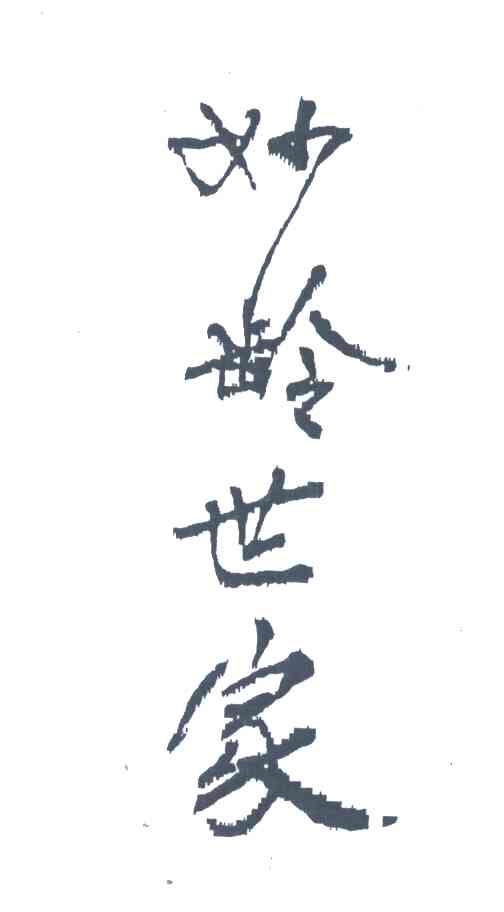 妙龄世家